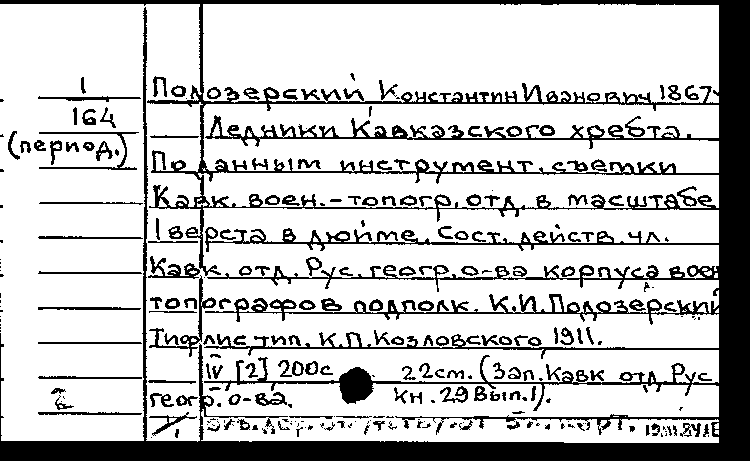 1
164
(период.)
Подозерский Константин Иванович, 1867-
Ледники Кавказского хребта.
По данным инструмент. съемки
Кавк. воен.-топогр. отд. в масштабе
1 верста в дюйме. Сост. действ. чл.
Кавк. отд. Рус. геогр. о-ва корпуса воен
топографов подполк. К.И. Подозерский
Тифлис, тип. К.П. Козловского, 1911.
IV, [2], 200с 22см. (Зап. Кавк отд. Рус.
геогр. о-ва. кн. 29 Вып. 1).